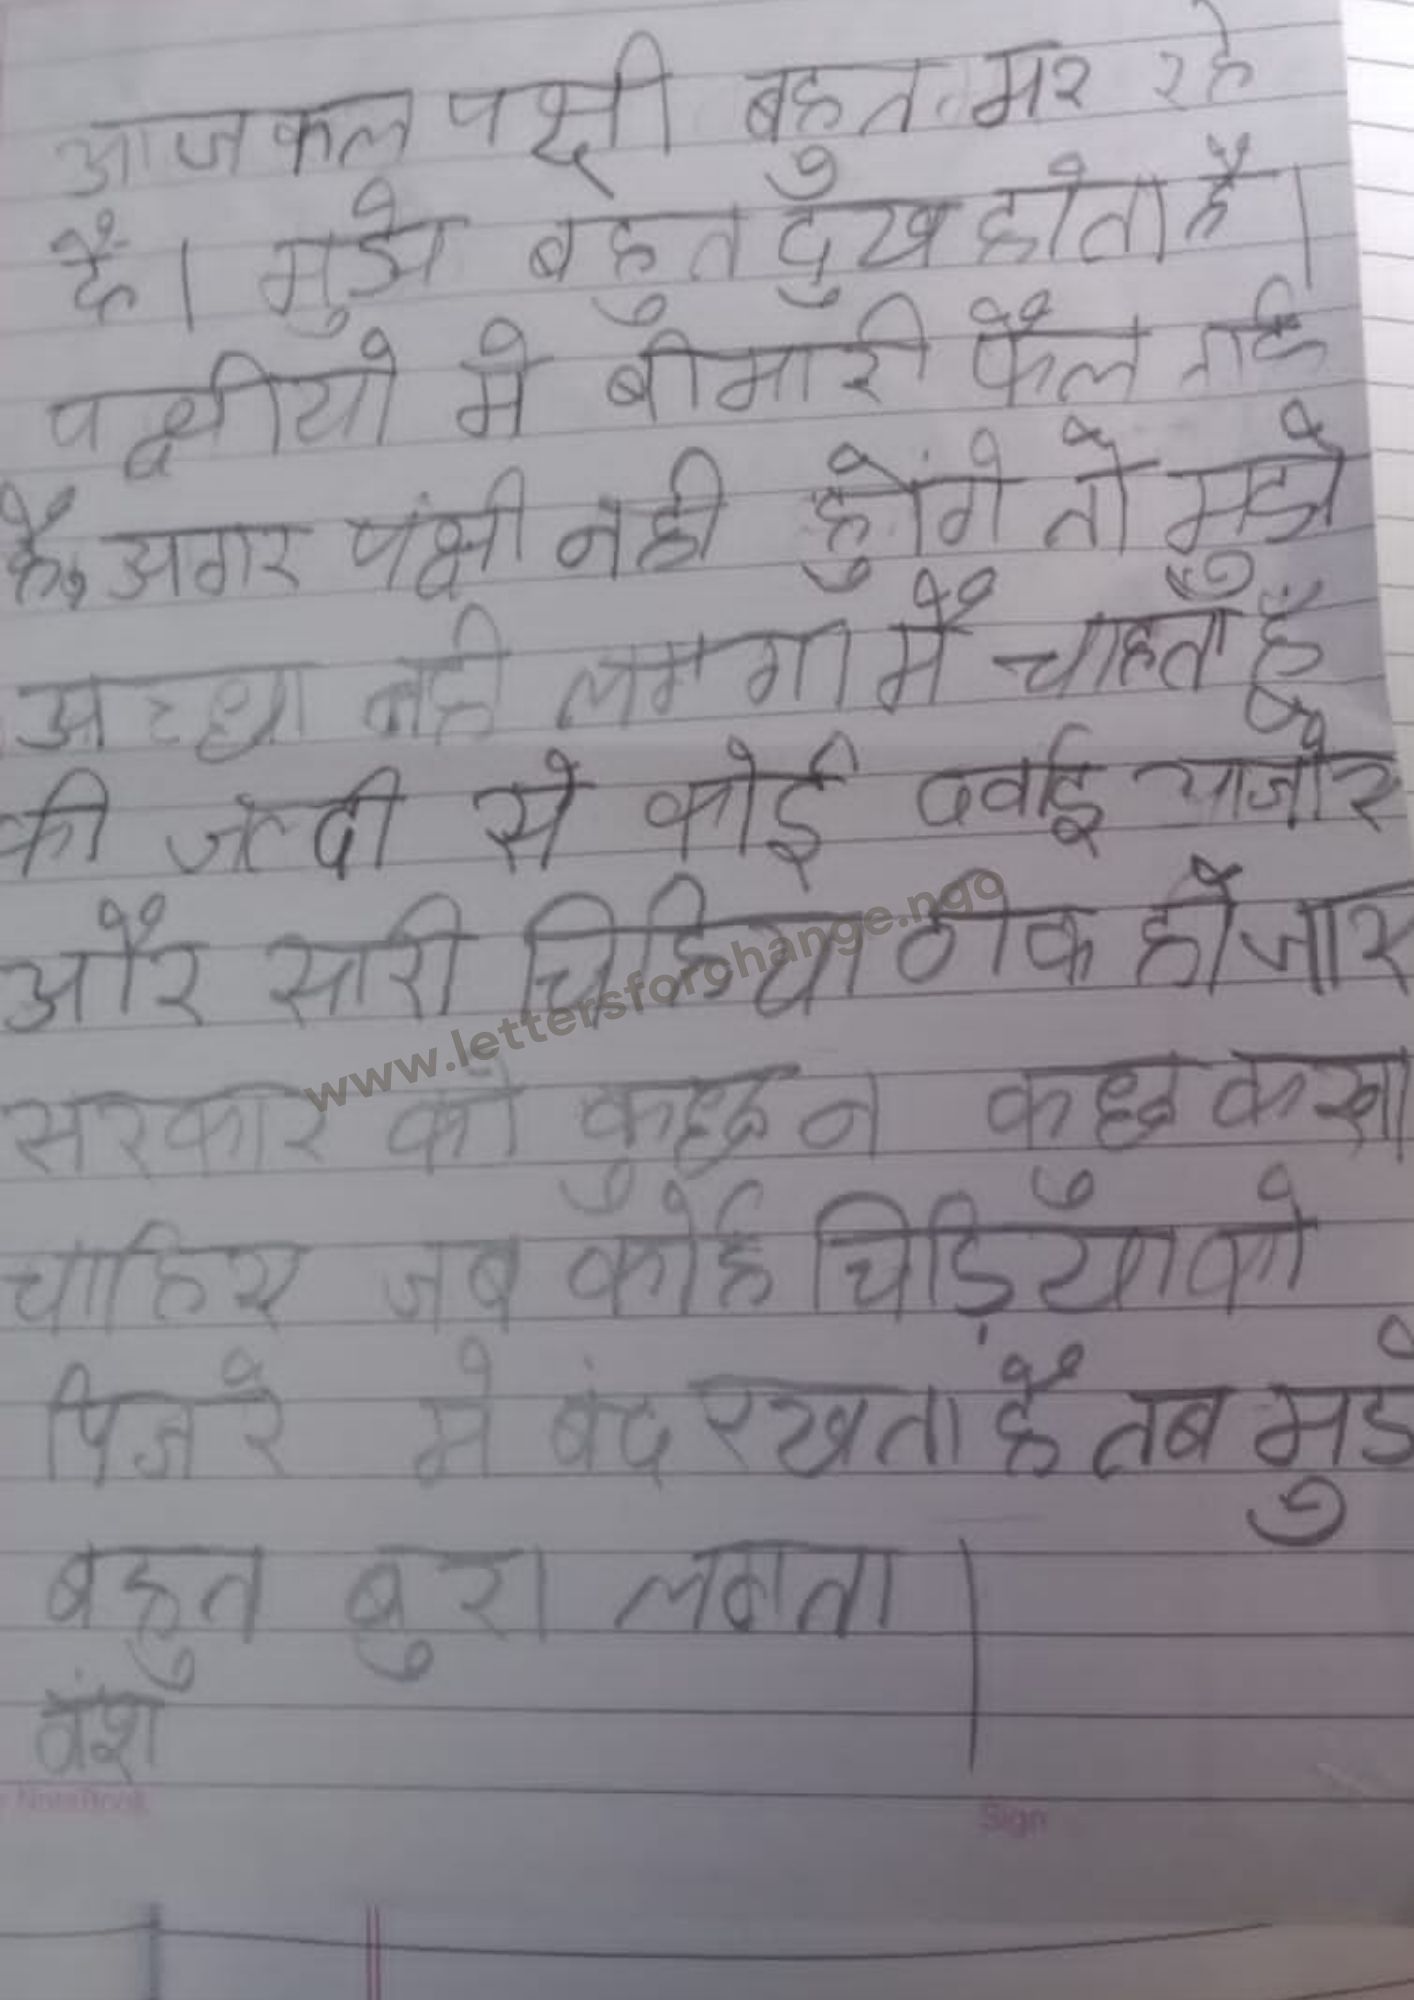 आज कल पक्षी बहुत मर रहे
हैं। मुझे बहुत दुख होता है।
पक्षीयो मे बीमारी फैल
है, अगर पंक्षी नही हुोंगे तो मुझे
अच्छा नही लगगा मैं चाहता हूँ
की जल्दी से कोई दवाई
और सारी चिड़िया ठीक हो जाए
www.lettersforchange.ngo
सरकार को कुछ न कुछ करना
चाहिए जब कोई चिड़िया को
पिजरे मे बंद रखता है तब मुझे
बहुत बुरा लगता |
वंश
NoteBook
Sign